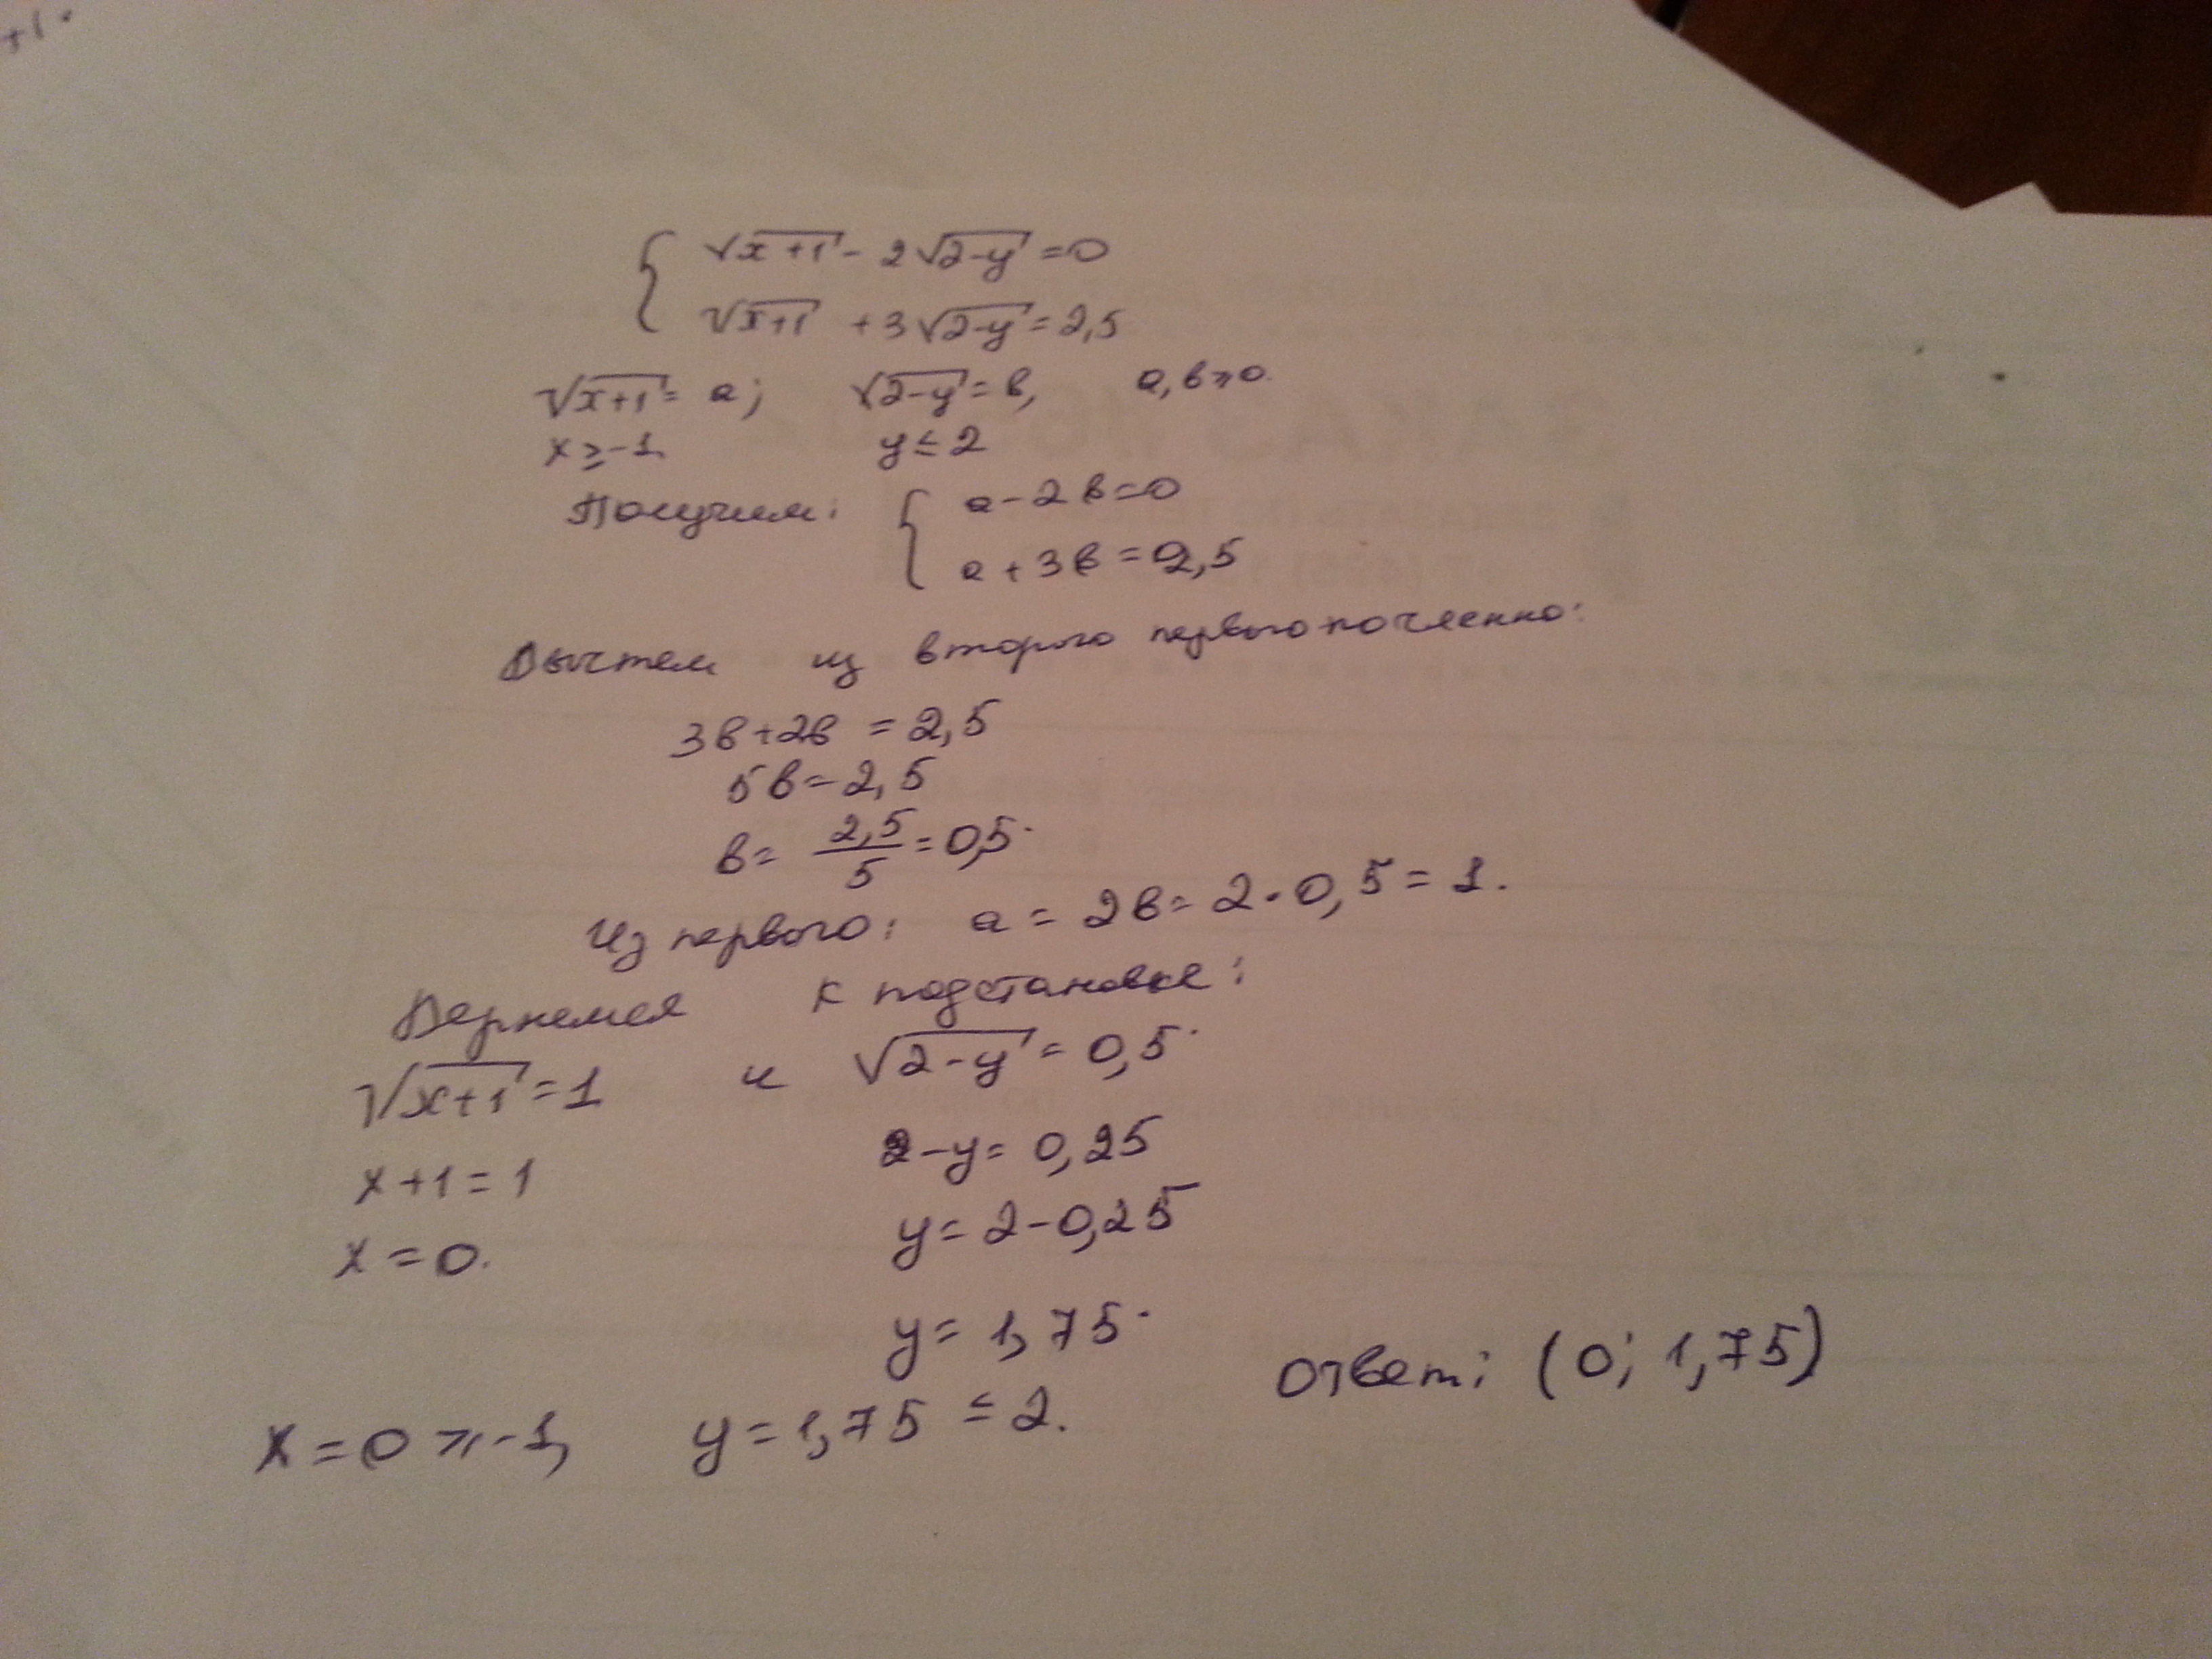 +1.
{ √x+1 - 2√2-y = 0
√x+1 + 3√2-y = 2,5
√x+1 = a; √2-y = в, a, в ≥ 0.
x ≥ -1, y ≤ 2
Получим: { a - 2в = 0
a + 3в = 2,5
Вычтем из второго первое почленно:
3в + 2в = 2,5
5в = 2,5
в = 2,5/5 = 0,5.
Из первого: a = 2в = 2·0,5 = 1.
Вернемся к подстановке:
√x+1 = 1 и √2-y = 0,5.
x+1 = 1 2-y = 0,25
x = 0. y = 2-0,25
y = 1,75. Ответ: (0; 1,75)
x = 0 ≥ -1, y = 1,75 ≤ 2.